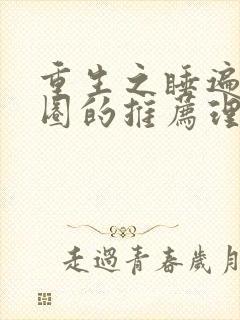 重生之睡遍
圈的推薦理
走過青春歲月